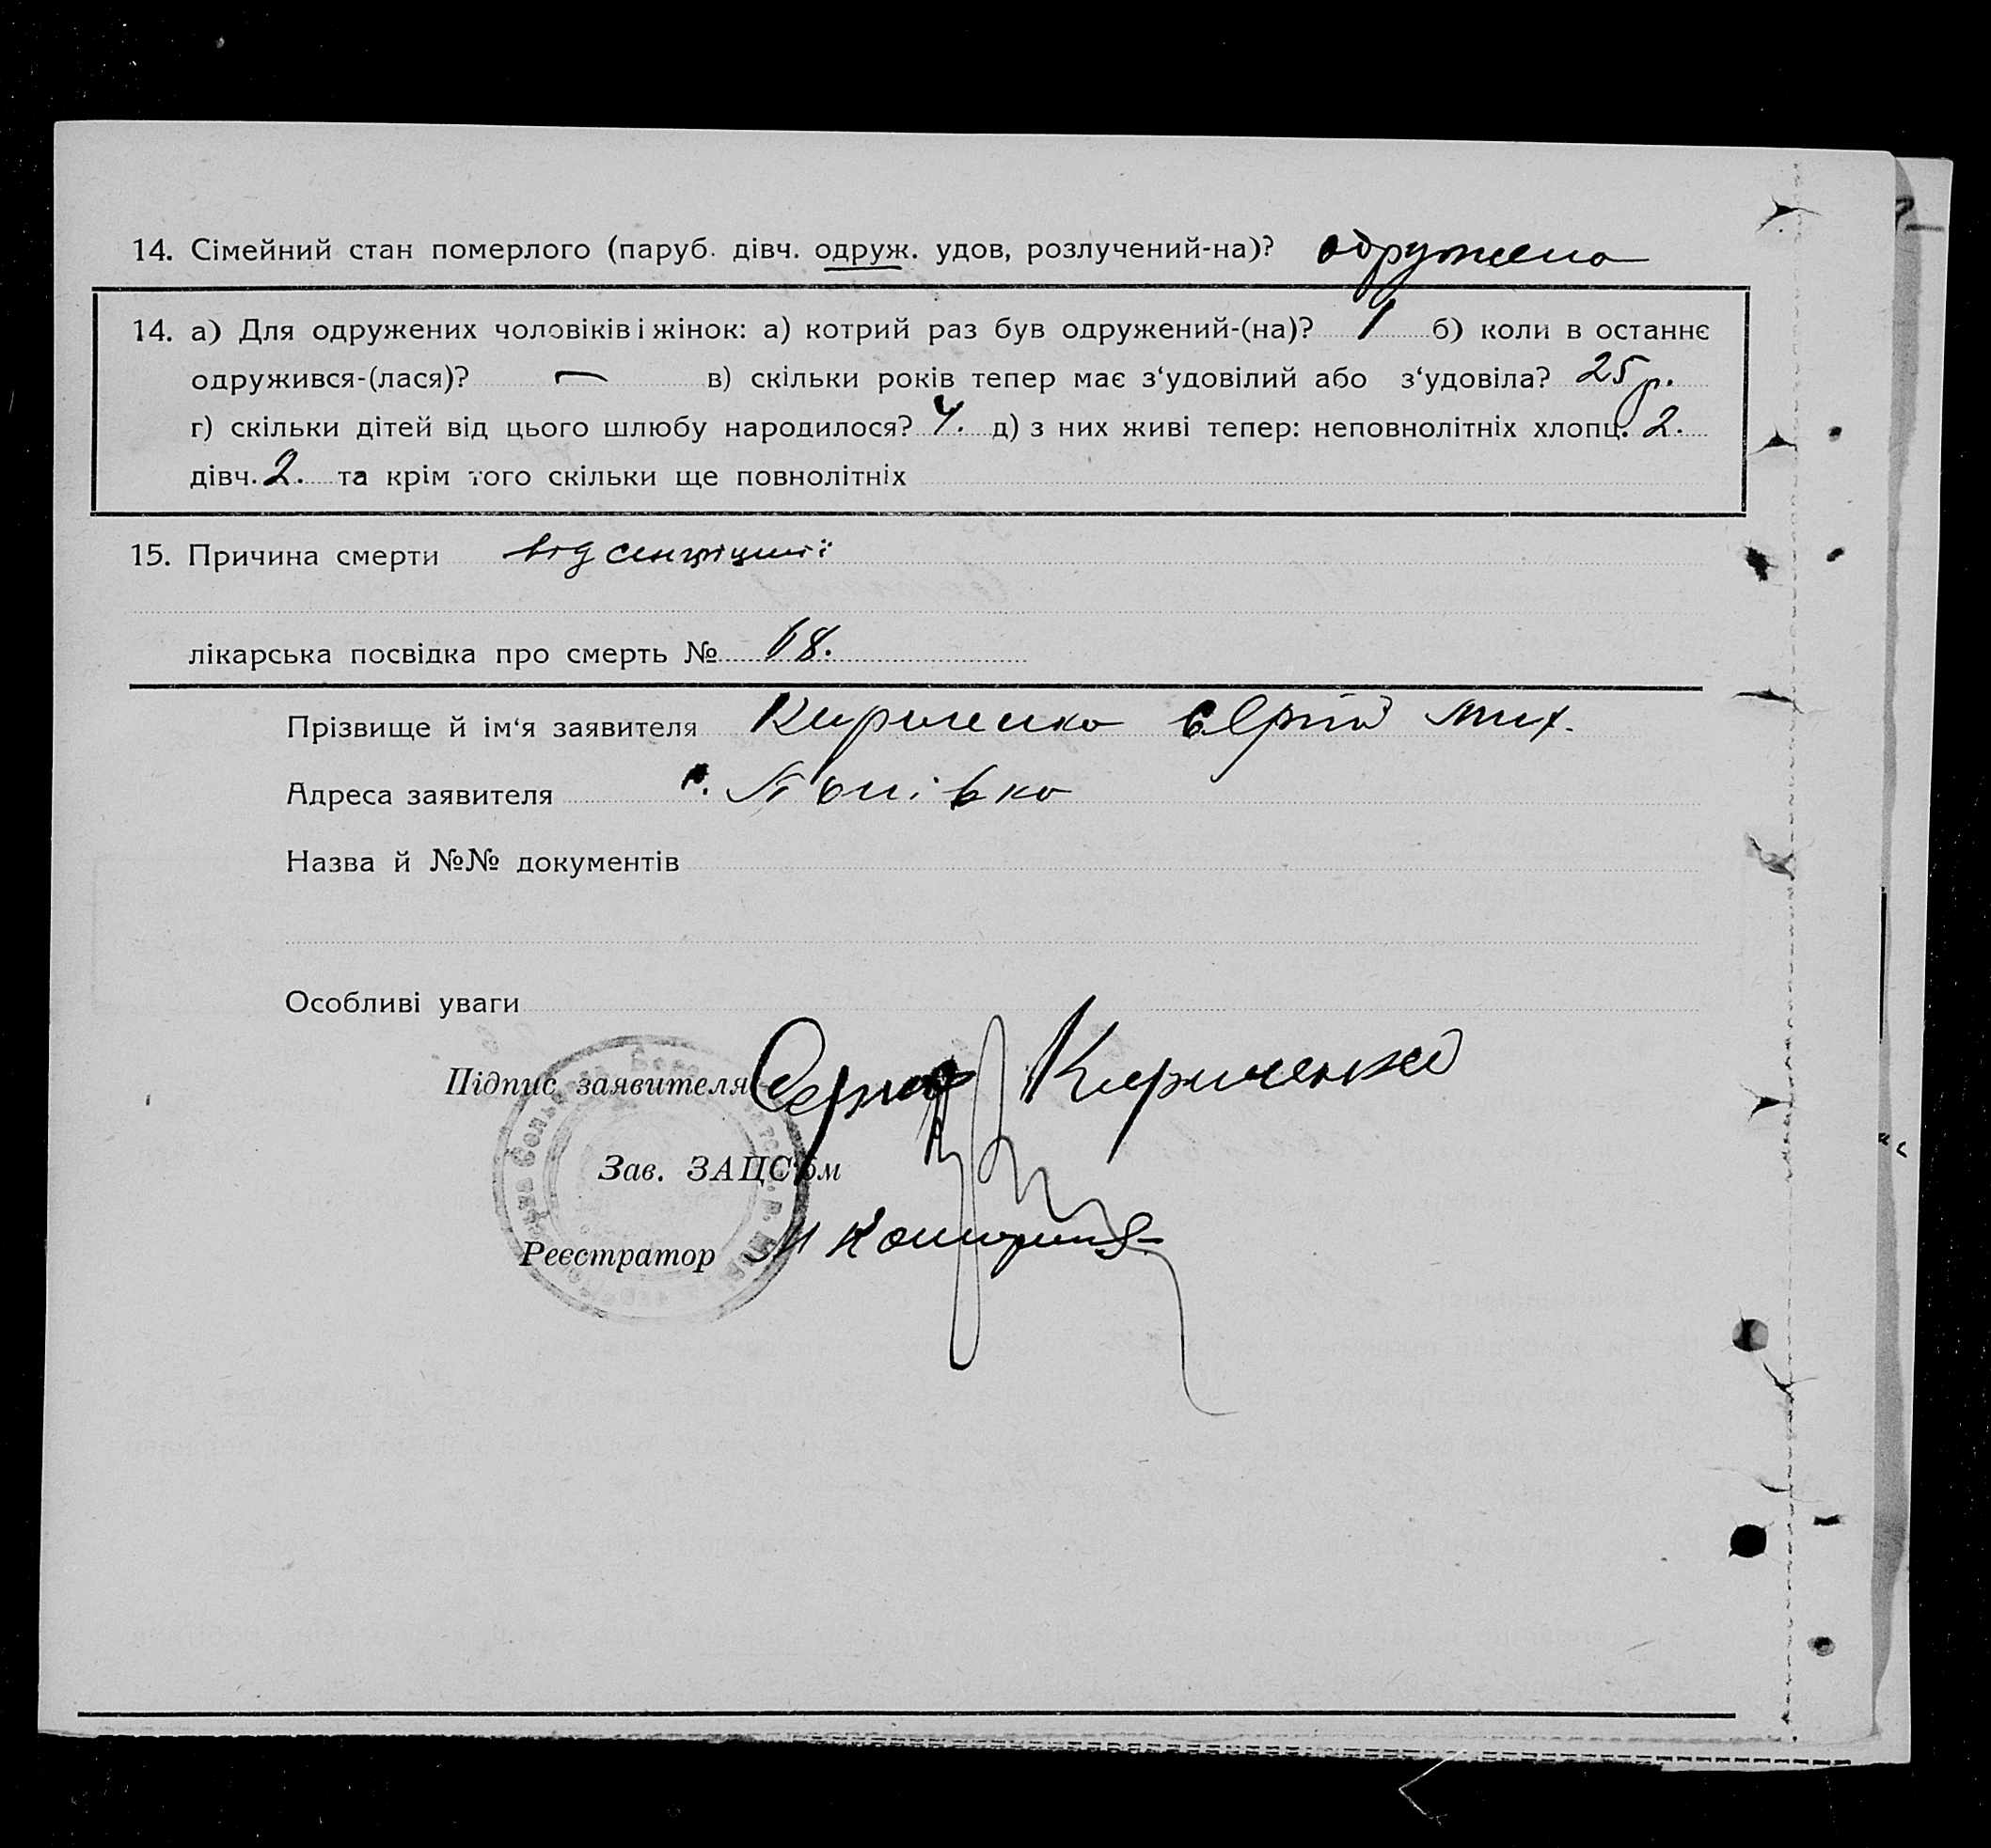 14. Сімейний стан померлого (паруб. дівч. одруж. удов, розлучений-на)? одружена
14. а) Для одружених чоловіків і жінок: а) котрий раз був одружений-(на)? 1 б) коли в останнє
одружився-(лася)? — в) скільки років тепер має з‘удовілий або з‘удовіла? 25 р.
г) скільки дітей від цього шлюбу народилося? 4. д) з них живі тепер: неповнолітніх хлопц. 2.
дівч. 2. та крім того скільки ще повнолітніх
15. Причина смерти від
лікарська посвідка про смерть № 68.
Прізвище й ім‘я заявителя Кириченко Сергій Мих.
Адреса заявителя
Назва й №№ документів
Особливі уваги
Підпис заявителя Сергій Кириченко
Зав. ЗАЦС‘ом
Реєстратор